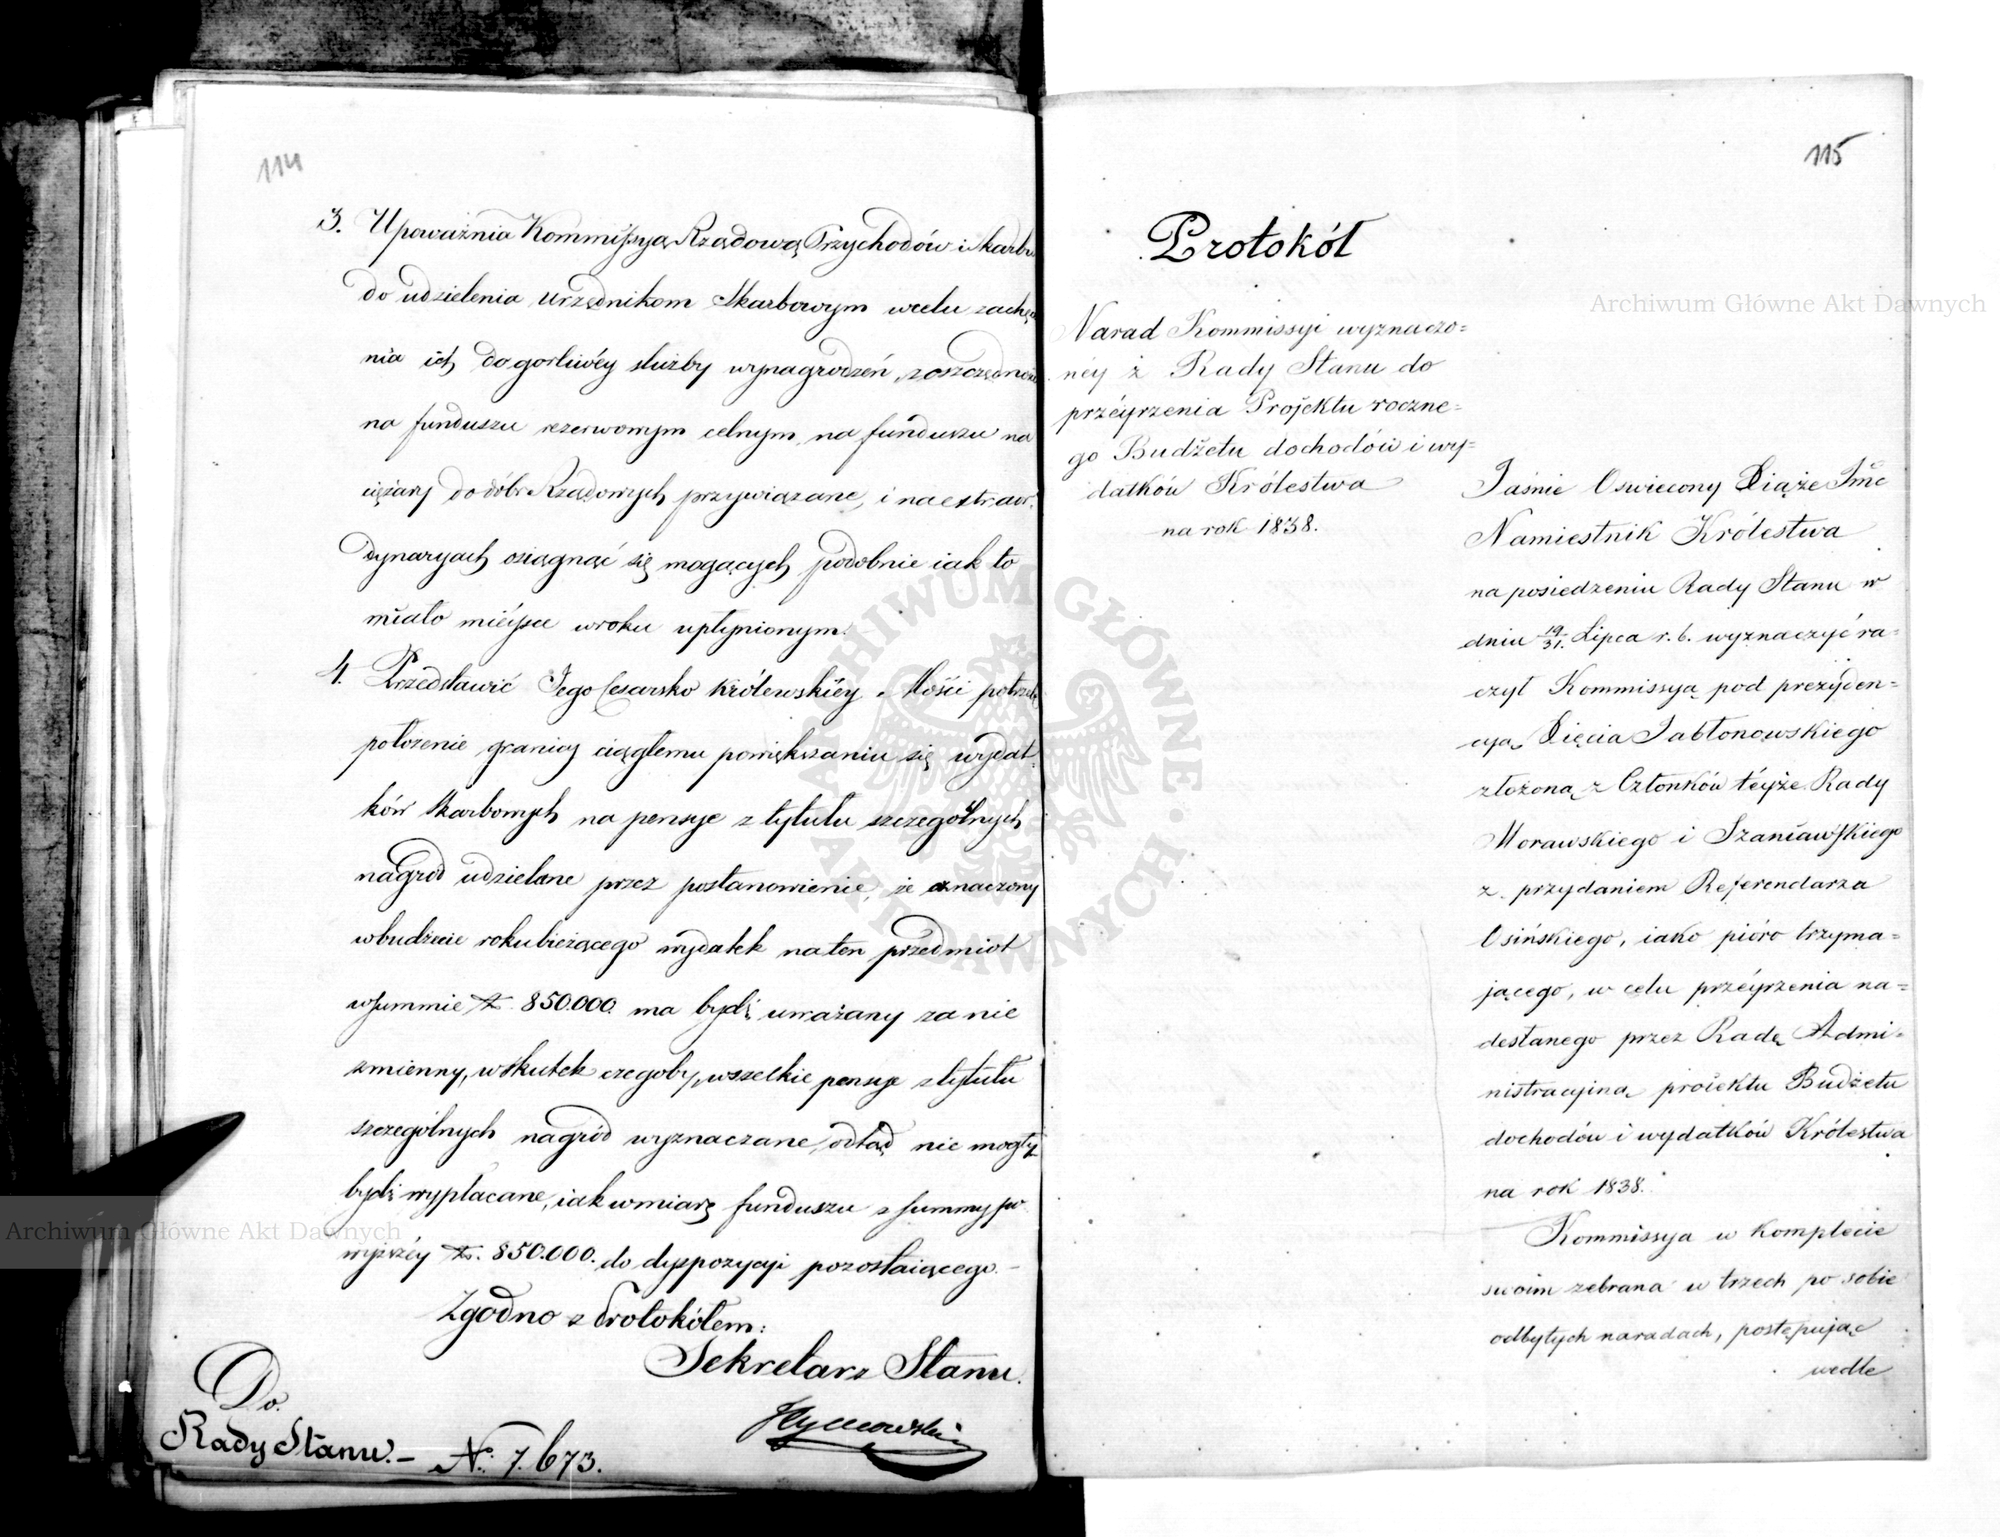 114
3. Upoważnia Kommissyą Rządową Przychodów i Skarbu
do udzielenia urzędnikom Skarbowym wcelu zachęce
nia ich do gorliwéy służby wynagrodzeń, zoszczędno
na funduszu rezerwowym celnym, na funduszu na
ciężary do dóbr Rządowych przywiązane, i na extraor
dynaryach osiągnąć się mogących podobnie iak to
miało mieysce wroku upłynionym.
4. Przedstawić Jego Cesarsko Królewskiéy Mości potrzebę
położenie granicy ciągłemu powiększaniu się wydat
ków Skarbowych na pensye z tytułu szczególnych
nagród udzielane przez postanowienie, że oznaczony
wbudżecie roku bieżącego wydatek na ten przedmiot
wsummie zł. 850.000. ma bydź uważany za nie
zmienny, wskutek czegoby, wszelkie pensye z tytułu
szczególnych nagród wyznaczane, odtąd nie mogły
bydź wypłacane, iak wmiarę funduszu z summy po
wyższéy zł. 850.000. do dyspozycyi pozostaiącego.—
Zgodno z Protokółem:
Sekretarz Stanu.
Do.
Rady Stanu.—
N. 7.673.
115
Protokół
Narad Kommissyi wyznaczo=
néy z Rady Stanu do
przéyrzenia Projektu roczne=
go Budżetu dochodów i wy=
datków Królestwa
na rok 1838.
Jaśnie Oswiecony Xiąże Jmć
Namiestnik Królestwa
na posiedzeniu Rady Stanu w
dniu 19/31. Lipca r. b. wyznaczyć ra=
czył Kommissyą pod prezyden=
cyą Xięcia Jabłonowskiego
złożoną z Członków téyże Rady
Morawskiego i Szaniawskiego
z przydaniem Referendarza
Osińskiego, iako pióro trzyma=
jącego, w celu przéyrzenia na=
desłanego przez Radę Admi=
nistracyiną proiektu Budżetu
dochodów i wydatków Królestwa
na rok 1838.
Kommissya w komplecie
swoim zebrana w trzech po sobie
odbytych naradach, postępując
wedle
Archiwum Główne Akt Dawnych
Archiwum Główne Akt Dawnych
ARCHIWUM GŁÓWNE AKT DAWNYCH